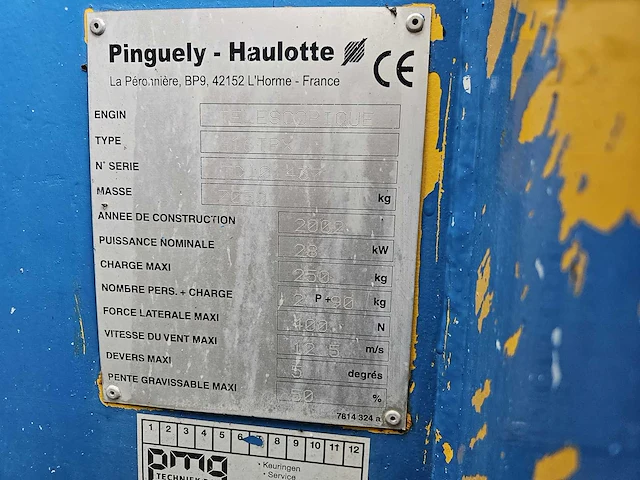 Pinguely - Haulotte
La Péronnière, BP9, 42152 L'Horme - France
CE
ENGIN TELESCOPIQUE
TYPE
N° SERIE
MASSE kg
ANNEE DE CONSTRUCTION 2000
PUISSANCE NOMINALE 28 kW
CHARGE MAXI 250 kg
NOMBRE PERS. + CHARGE 2 P + 90 kg
FORCE LATERALE MAXI 400 N
VITESSE DU VENT MAXI 12.5 m/s
DEVERS MAXI 5 degrés
PENTE GRAVISSABLE MAXI 50 %
7814 324 a
1 2 3 4 5 6 8 9 10 11 12
pmg
TECHNIEK
• Keuringen
• Service